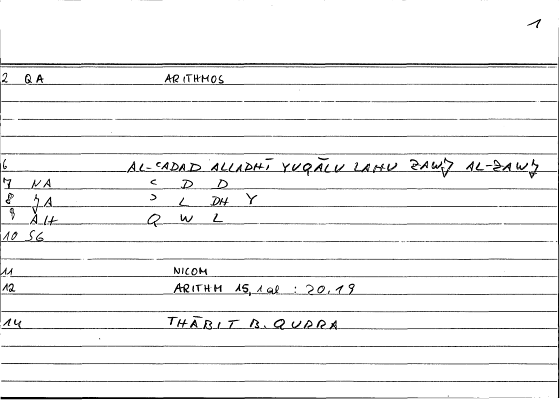 1
2 QA ARITHMOS
6 AL-ʿADAD ALLADHĪ YUQĀLU LAHU ZAWǦ AL-ZAWǦ
7 NA ʿ D D
8 ǦA ʾ L DH Y
9 AH Q W L
10 SG
11 NICOM
12 ARITHM 15, 1 al : 20.19
14 THĀBIT B. QURRA